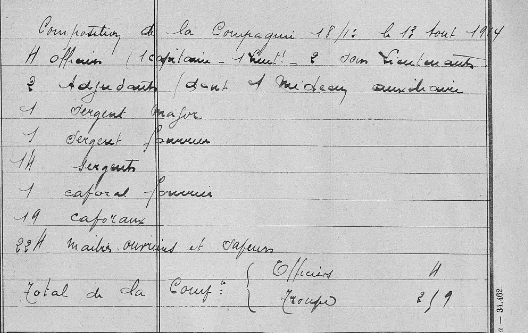 Composition de la Compagnie 18/1 le 13 Aout 1914
4 officiers (1 capitaine - 1 Lieutt - 2 Sous Lieutenants
2 Adjudants (dont 1 Médecin auxiliaire
1 Sergent major
1 Sergent fourrier
14 Sergents
1 caporal fourrier
19 caporaux
224 maitres ouvriers et sapeurs
Total de la Comp. { Officiers 4
Troupe 259
34.462